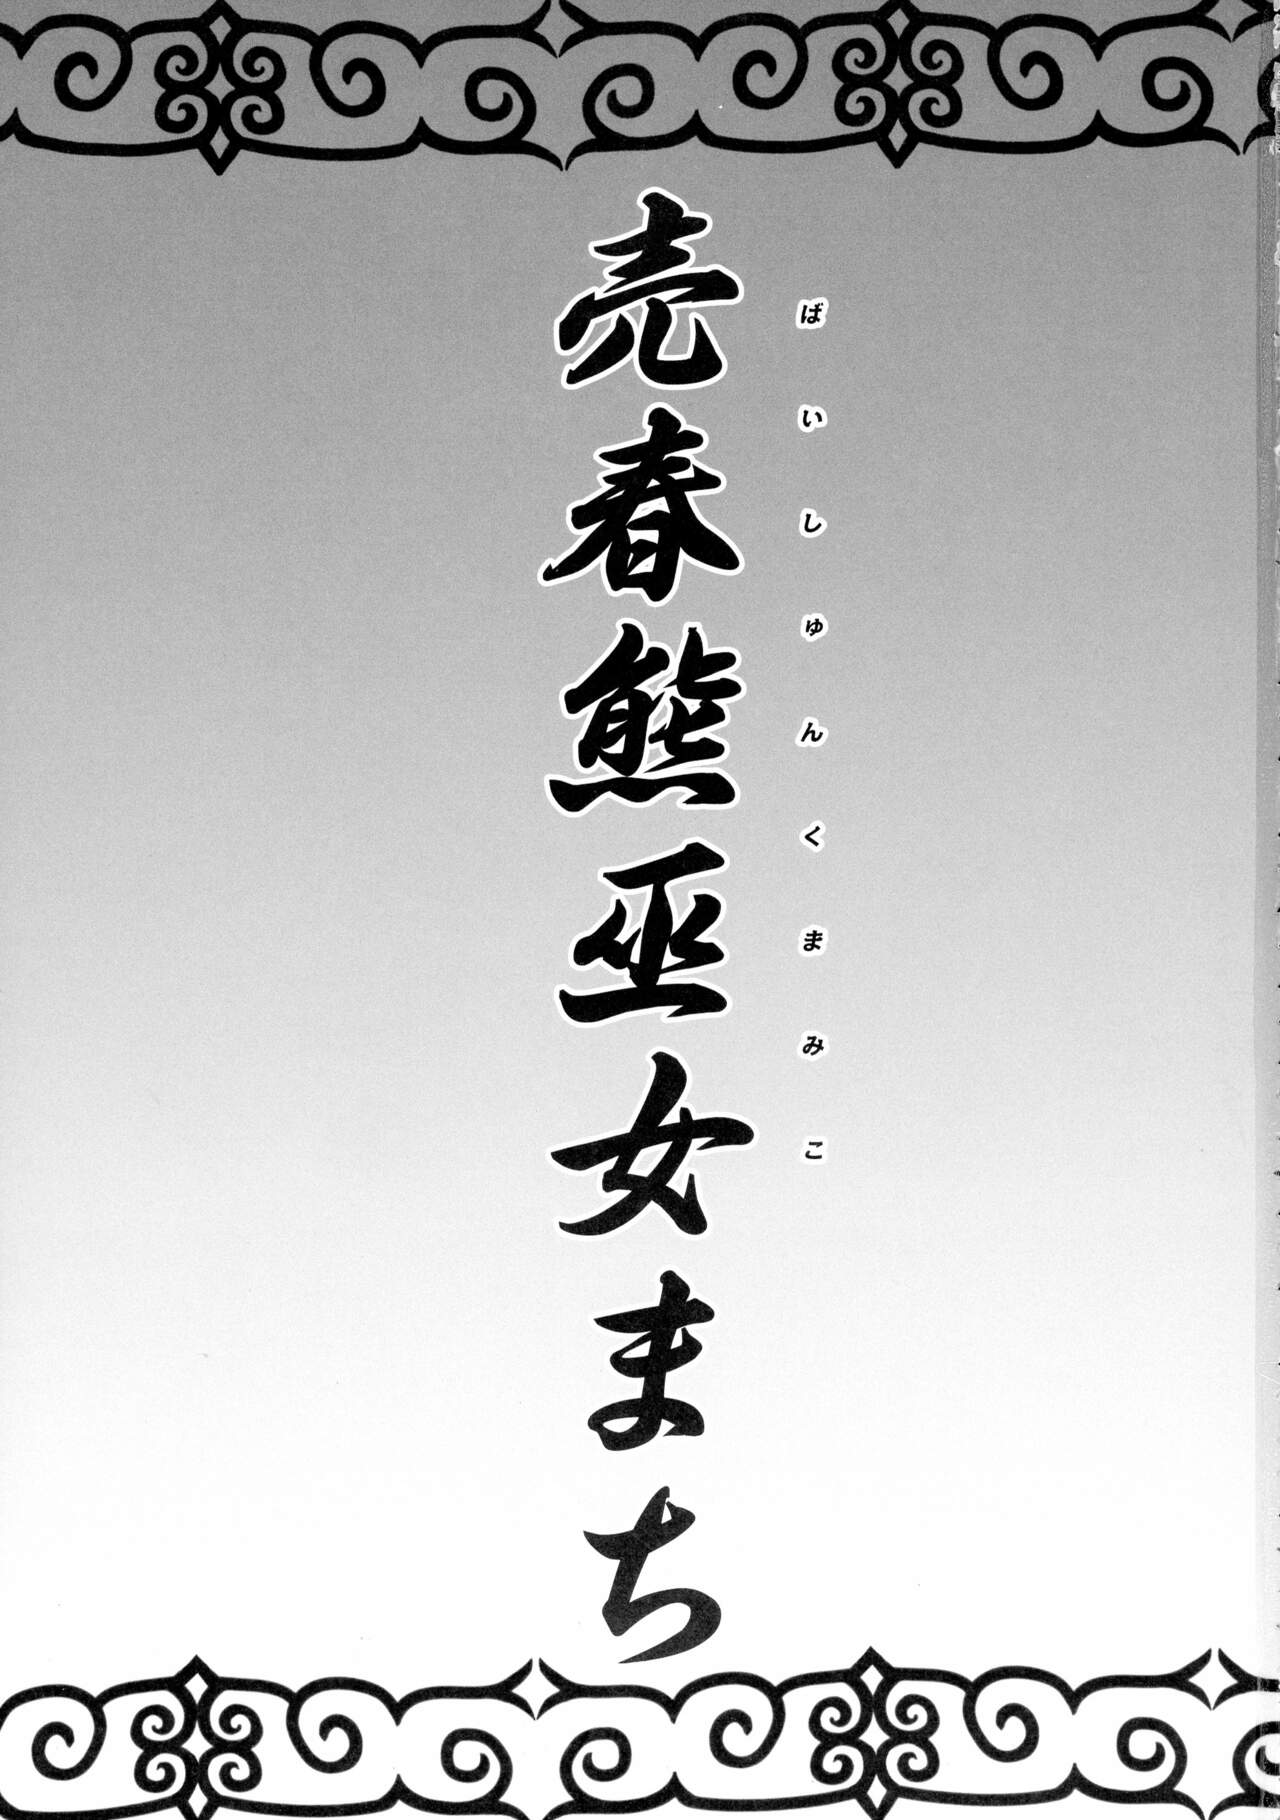 売春熊巫女まち
ばいしゅんくまみこ